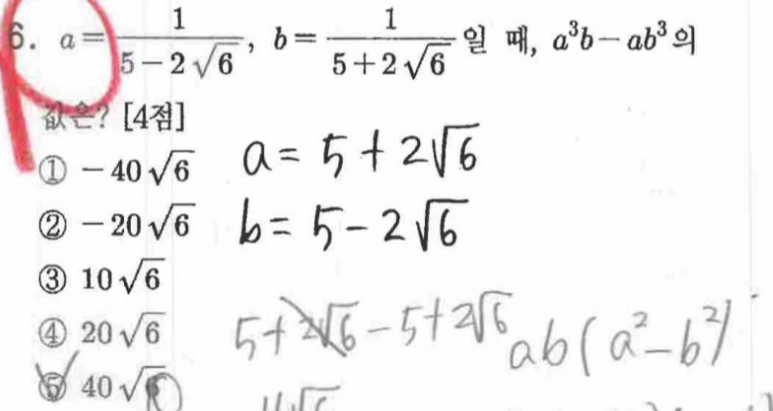 6. a = 1/(5-2√6), b = 1/(5+2√6) 일 때, a³b-ab³의
값은? [4점]
① -40√6
② -20√6
③ 10√6
④ 20√6
⑤ 40√6
a = 5+2√6
b = 5-2√6
5+2√6-5+2√6
ab(a²-b²)
4√6